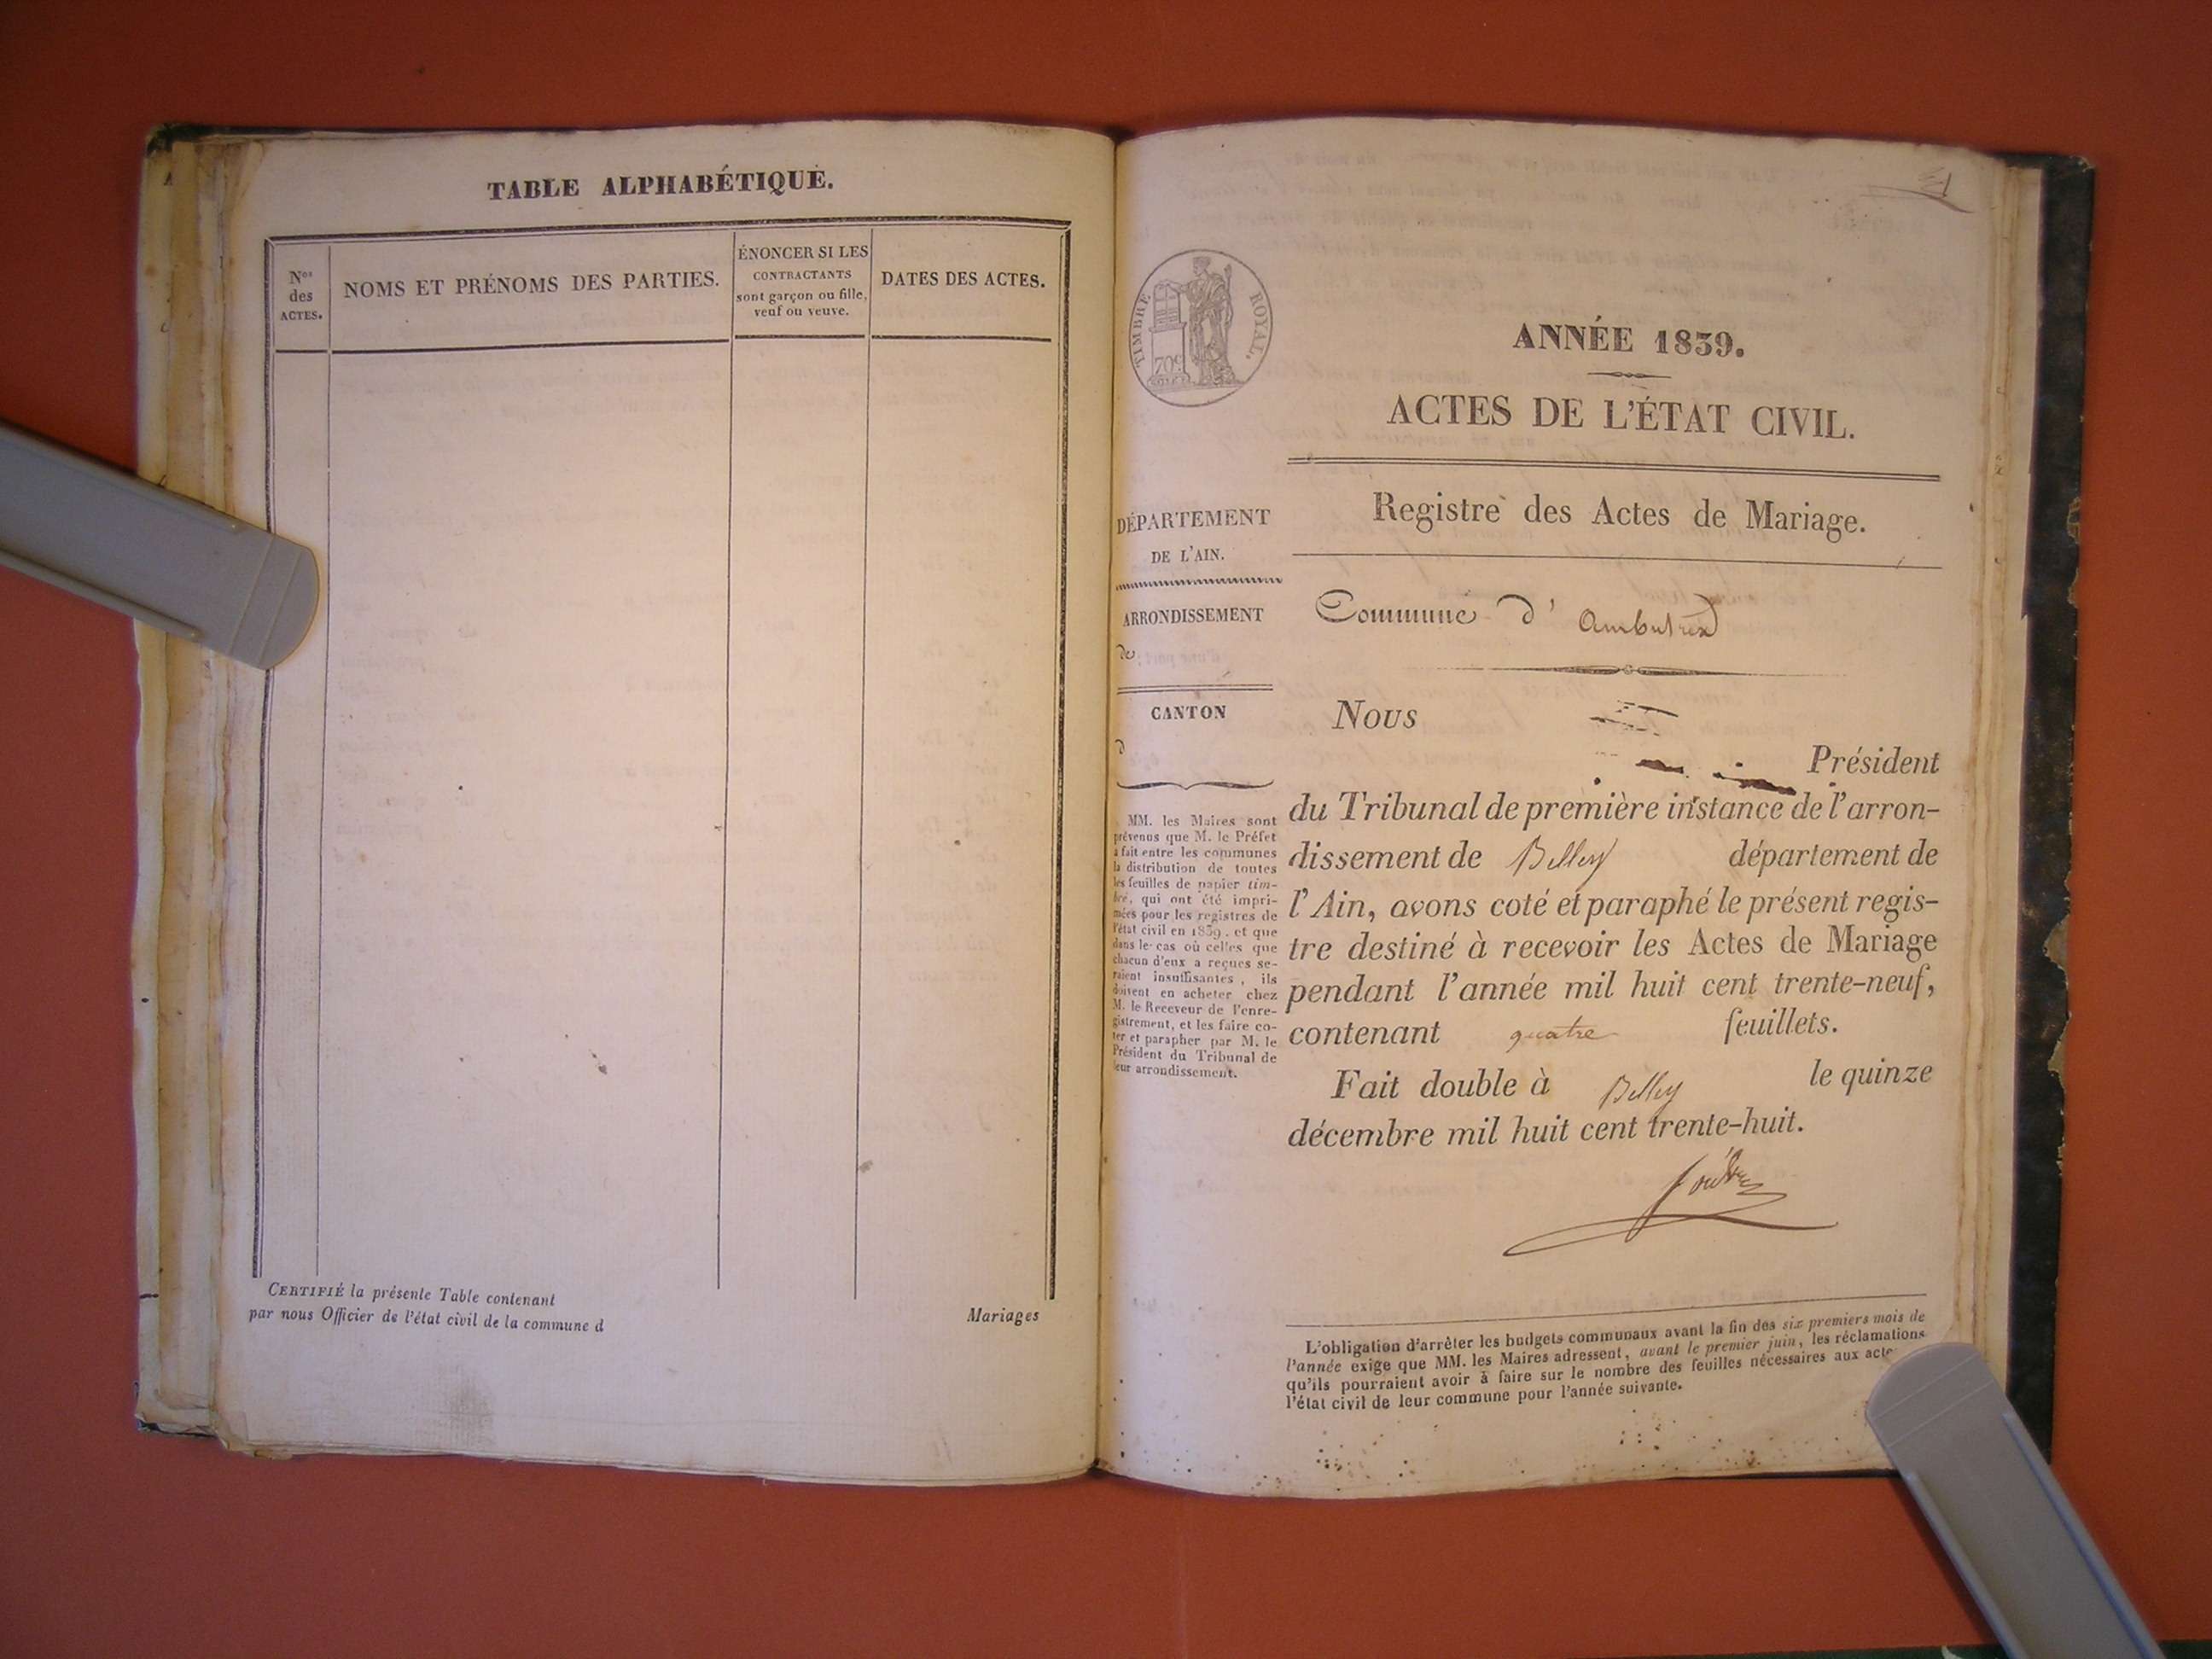 TABLE ALPHABÉTIQUE.
Nos
des
ACTES.
NOMS ET PRÉNOMS DES PARTIES.
ÉNONCER SI LES
CONTRACTANTS
sont garçon ou fille,
veuf ou veuve.
DATES DES ACTES.
CERTIFIÉ la présente Table contenant
Mariages
par nous Officier de l'état civil de la commune d
TIMBRE ROYAL.
70c
DÉPARTEMENT
DE L'AIN.
ARRONDISSEMENT
de
CANTON
d
MM. les Maires sont
prévenus que M. le Préfet
a fait entre les communes
la distribution de toutes
les feuilles de papier tim-
bré, qui ont été impri-
mées pour les registres de
l'état civil en 1839, et que
dans le cas où celles que
chacun d'eux a reçues se-
raient insuffisantes, ils
doivent en acheter chez
M. le Receveur de l'enre-
gistrement, et les faire co-
ter et parapher par M. le
Président du Tribunal de
leur arrondissement.
ANNÉE 1839.
ACTES DE L'ÉTAT CIVIL.
Registre des Actes de Mariage.
Commune d' Ambutrix
Nous
Président
du Tribunal de première instance de l'arron-
dissement de Belley département de
l'Ain, avons coté et paraphé le présent regis-
tre destiné à recevoir les Actes de Mariage
pendant l'année mil huit cent trente-neuf,
contenant quatre feuillets.
Fait double à Belley le quinze
décembre mil huit cent trente-huit.
L'obligation d'arrêter les budgets communaux avant la fin des six premiers mois de
l'année exige que MM. les Maires adressent, avant le premier juin, les réclamations
qu'ils pourraient avoir à faire sur le nombre des feuilles nécessaires aux acte
l'état civil de leur commune pour l'année suivante.